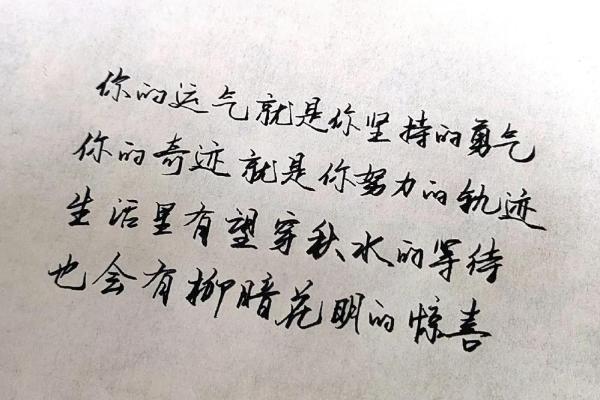 你的运气就是你坚持的勇气
你的奇迹就是你努力的轨迹
生活里有望穿秋水的等待
也会有柳暗花明的惊喜